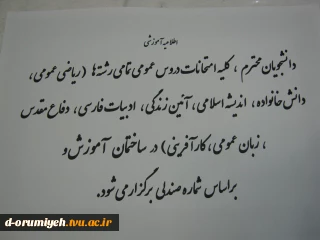 اطلاعیه آموزشی
دانشجویان محترم ، کلیه امتحانات دروس عمومی تمامی رشته ها (ریاضی عمومی،
دانش خانواده ، اندیشه اسلامی، آئین زندگی، ادبیات فارسی، دفاع مقدس
، زبان عمومی، کارآفرینی) در ساختمان آموزش و
براساس شماره صندلی برگزار می شود.
d-orumiyeh.tvu.ac.ir